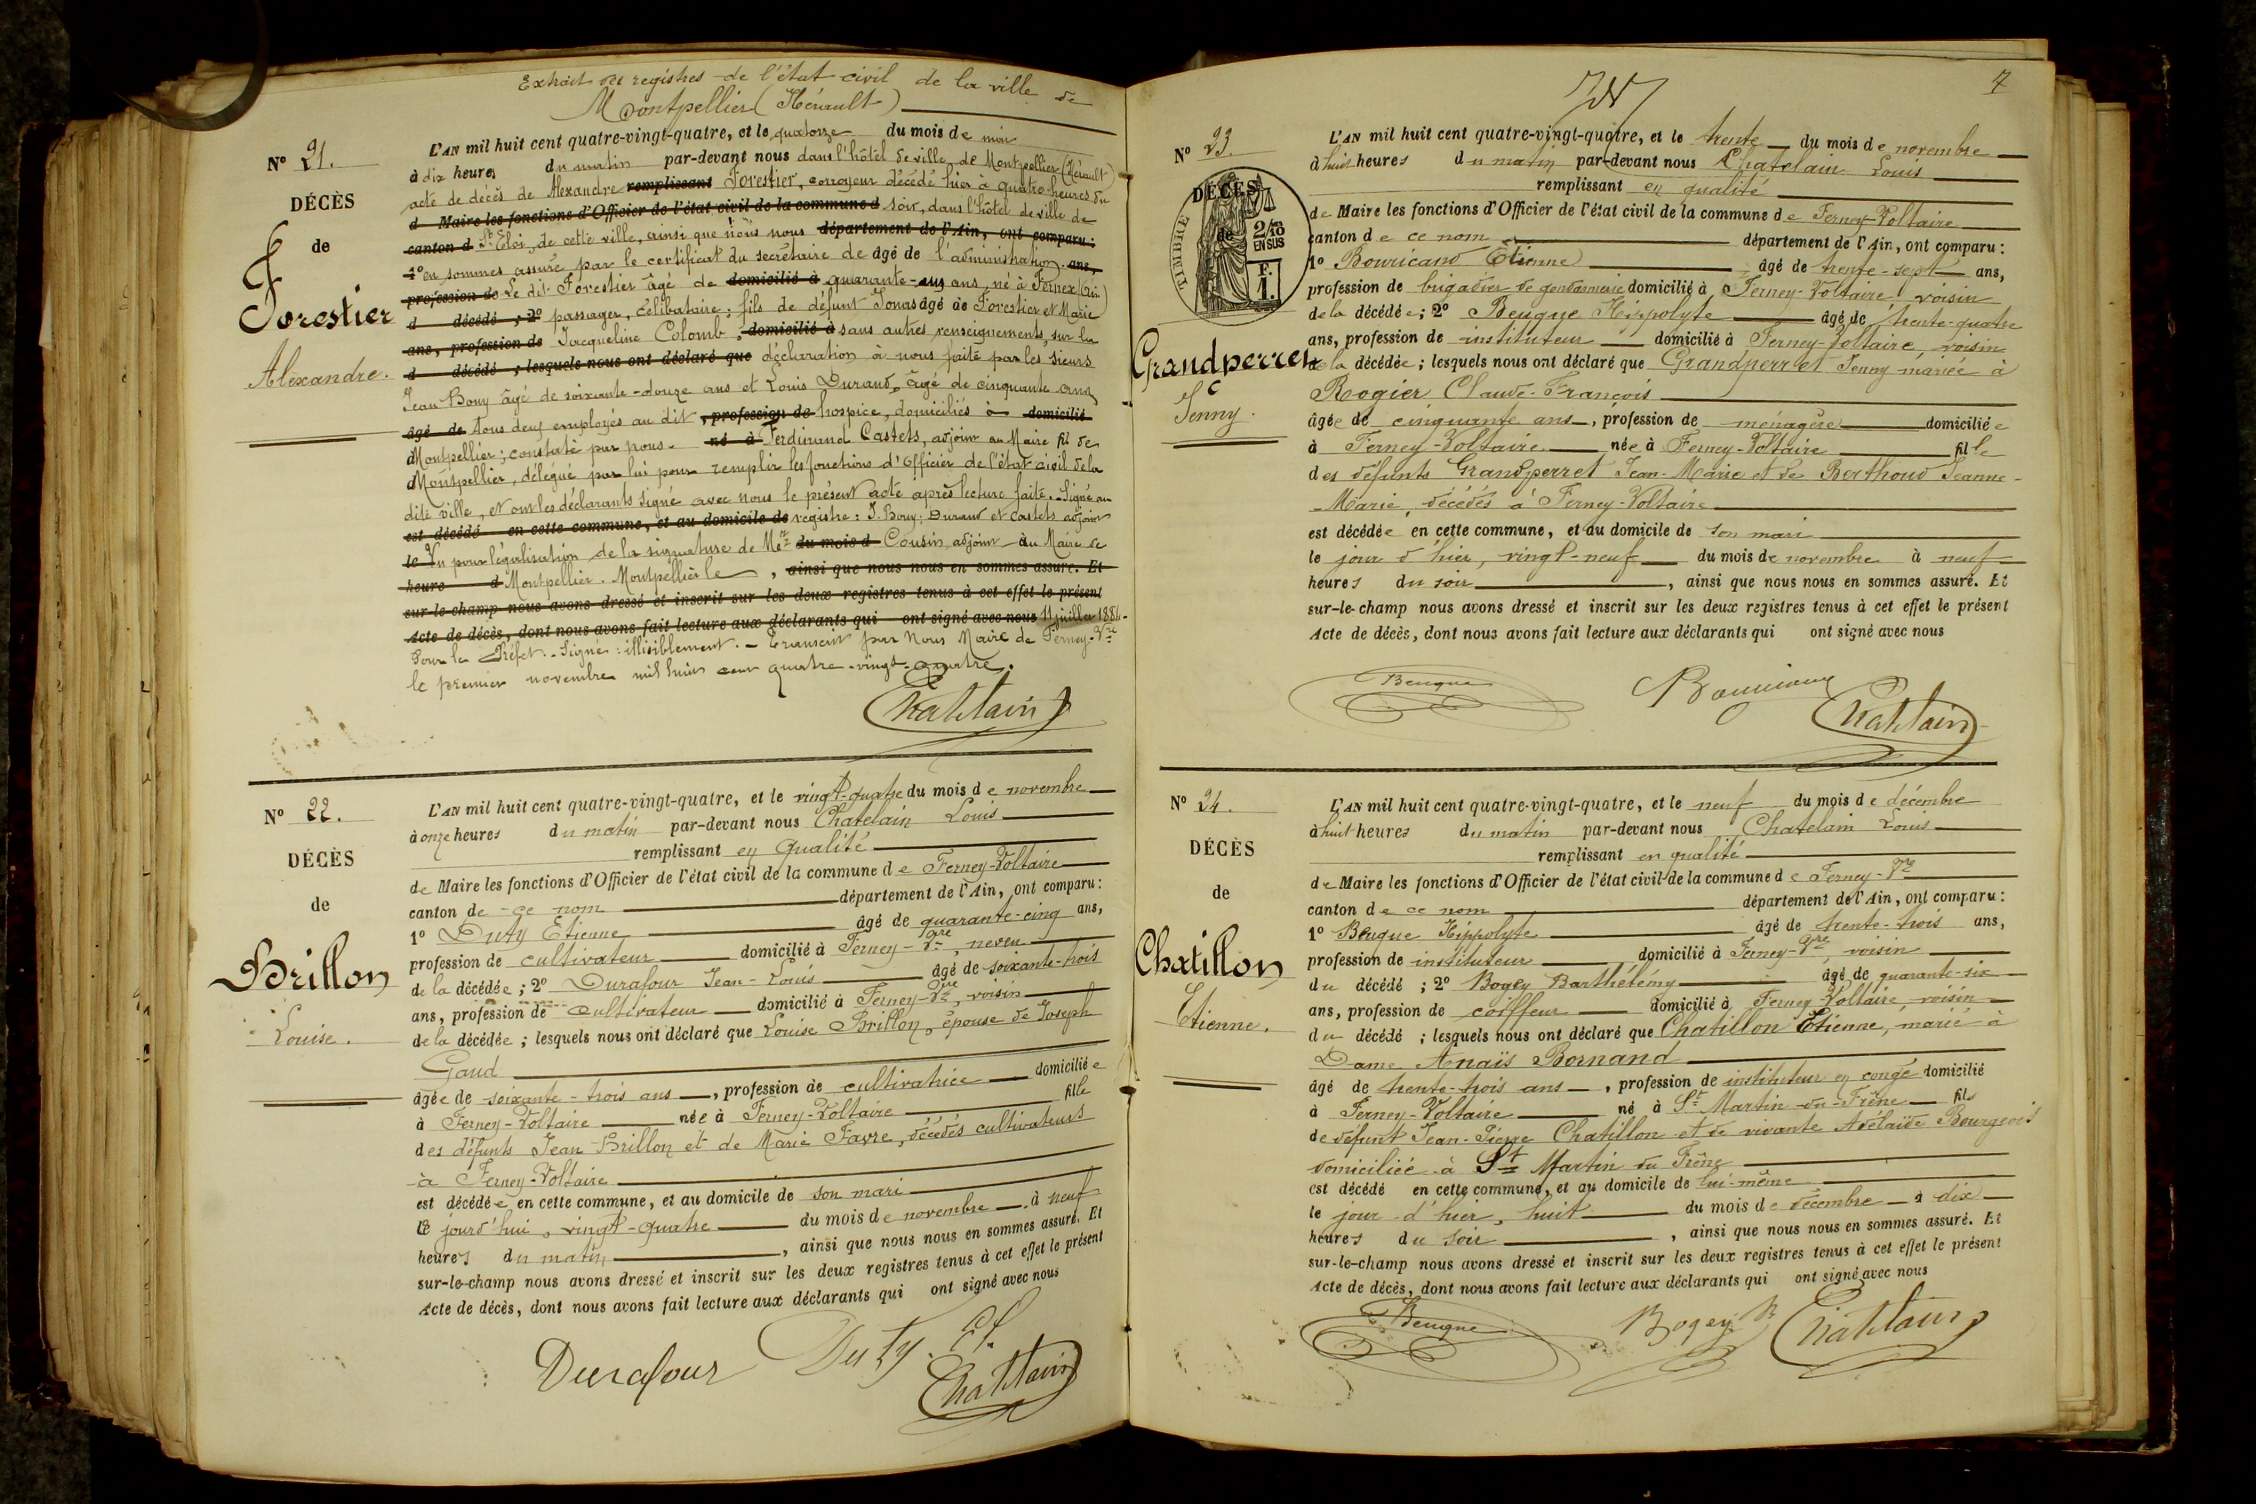 Extrait des registres de l'état civil de la ville de
Montpellier (Hérault)
N° 21.
DÉCÈS
de
Forestier
Alexandre.
L'AN mil huit cent quatre-vingt-quatre, et le quatorze du mois de mai
à dix heures du matin par-devant nous dans l'hôtel de ville de Montpellier (Hérault)
acte de décès de Alexandre remplissant Forestier, corroyeur décédé hier à quatre heures du
d Maire les fonctions d'Officier de l'état civil de la commune d soir, dans l'hôtel de ville de
canton d St Eloi, de cette ville, ainsi que nous nous département de l'Ain, ont comparu:
1° en sommes assuré par le certificat du secrétaire de âgé de l'administration. ans,
profession de Le dit Forestier âgé de domicilié à quarante- ans, né à Fernex (Ain)
d décédé ; 2° passager, célibataire; fils de défunt Jonas âgé de Forestier et Marie
ans, profession de Jacqueline Colomb, domicilié à sans autres renseignements, sur la
d décédé ; lesquels nous ont déclaré que déclaration à nous faite par les sieurs
Jean Bouy âgé de soixante-douze ans et Louis Durand, âgé de cinquante ans,
âgé de tous deux employés au dit , profession de hospice, domiciliés à domicilié
Montpellier; constaté par nous. né à Ferdinand Castets, adjoint au Maire fil de
Montpellier, délégué par lui pour remplir les fonctions d'Officier de l'état civil de la
dite ville, et ont les déclarants signé avec nous le présent acte après lecture faite. Signé au
est décédé en cette commune, et au domicile de registre: J. Bouy; Durand et Castets adjoint
le Vu pour légalisation de la signature de Mr du mois d Cousin, adjoint au Maire de
heure d Montpellier. Montpellier le , ainsi que nous nous en sommes assuré. Et
sur-le-champ nous avons dressé et inscrit sur les deux registres tenus à cet effet le présent
Acte de décès, dont nous avons fait lecture aux déclarants qui ont signé avec nous 11 juillet 1884.
Pour le Préfet. Signé: illisiblement. - Transcrit par Nous Maire de Ferney-Vre
le premier novembre mil huit cent quatre-vingt-quatre.
Chatelain
N° 22.
DÉCÈS
de
Brillon
Louise.
L'AN mil huit cent quatre-vingt-quatre, et le vingt-quatre du mois de novembre
à onze heures du matin par-devant nous Chatelain Louis
remplissant en qualité
de Maire les fonctions d'Officier de l'état civil de la commune de Ferney-Voltaire
canton de ce nom département de l'Ain, ont comparu:
1° Duty Etienne âgé de quarante-cinq ans,
profession de cultivateur domicilié à Ferney-Vre, neveu
de la décédée ; 2° Durafour Jean-Louis âgé de soixante-trois
ans, profession de cultivateur domicilié à Ferney-Vre, voisin
de la décédée ; lesquels nous ont déclaré que Louise Brillon, épouse de Joseph
Gaud
âgée de soixante-trois ans, profession de cultivatrice domiciliée
à Ferney-Voltaire née à Ferney-Voltaire fille
des défunts Jean Brillon et de Marie Favre, décédés cultivateurs
à Ferney-Voltaire
est décédée en cette commune, et au domicile de son mari
le jourd'hui, vingt-quatre du mois de novembre à neuf
heures du matin, ainsi que nous nous en sommes assuré. Et
sur-le-champ nous avons dressé et inscrit sur les deux registres tenus à cet effet le présent
Acte de décès, dont nous avons fait lecture aux déclarants qui ont signé avec nous
Durafour Duty. Et.
Chatelain
7
N° 23.
DÉCÈS
de
TIMBRE
2/10
EN SUS
F.
1.
Grandperret
Jenny.
L'AN mil huit cent quatre-vingt-quatre, et le trente du mois de novembre
à huit heures du matin par-devant nous Chatelain Louis
remplissant en qualité
de Maire les fonctions d'Officier de l'état civil de la commune de Ferney-Voltaire
canton de ce nom département de l'Ain, ont comparu:
1° Bouricand Etienne âgé de trente-sept ans,
profession de brigadier de gendarmerie domicilié à Ferney-Voltaire, voisin
de la décédée; 2° Beugue Hippolyte âgé de trente-quatre
ans, profession de instituteur domicilié à Ferney-Voltaire, voisin
de la décédée; lesquels nous ont déclaré que Grandperret Jenny, mariée à
Rogier Claude-François
âgée de cinquante ans, profession de ménagère domiciliée
à Ferney-Voltaire née à Ferney-Voltaire fille
des défunts Grandperret Jean-Marie et de Berthoud Jeanne-
-Marie, décédés à Ferney-Voltaire
est décédée en cette commune, et au domicile de son mari
le jour d'hier, vingt-neuf du mois de novembre à neuf
heures du soir, ainsi que nous nous en sommes assuré. Et
sur-le-champ nous avons dressé et inscrit sur les deux registres tenus à cet effet le présent
Acte de décès, dont nous avons fait lecture aux déclarants qui ont signé avec nous
Beugue
Chatelain
N° 24.
DÉCÈS
de
Chatillon
Etienne.
L'AN mil huit cent quatre-vingt-quatre, et le neuf du mois de décembre
à huit heures du matin par-devant nous Chatelain Louis
remplissant en qualité
de Maire les fonctions d'Officier de l'état civil de la commune de Ferney-Vre
canton de ce nom département de l'Ain, ont comparu:
1° Beugue Hippolyte âgé de trente-trois ans,
profession de instituteur domicilié à Ferney-Vre, voisin
du décédé ; 2° Bogey Barthélémy âgé de quarante-six
ans, profession de coiffeur domicilié à Ferney-Voltaire voisin
du décédé ; lesquels nous ont déclaré que Chatillon Etienne, marié à
Dame Anaïs Bornand
âgé de trente-trois ans, profession de instituteur en congé domicilié
à Ferney-Voltaire né à St Martin-du-Frêne fils
de défunt Jean-Pierre Chatillon et de vivante Adélaïde Bourgeois
domiciliée à St Martin du Frêne
est décédé en cette commune, et au domicile de lui-même
le jour d'hier, huit du mois de décembre à dix
heures du soir, ainsi que nous nous en sommes assuré. Et
sur-le-champ nous avons dressé et inscrit sur les deux registres tenus à cet effet le présent
Acte de décès, dont nous avons fait lecture aux déclarants qui ont signé avec nous
Beugue Bogey B Chatelain